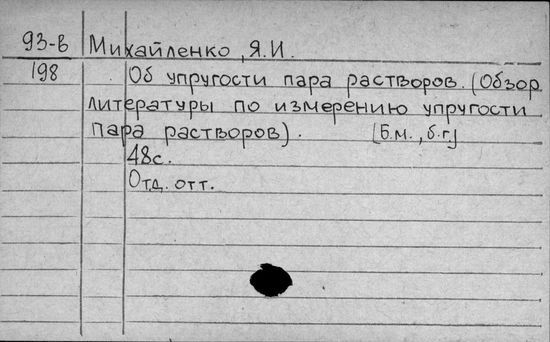 93-В Михайленко, Я.И.
198 Об упругости пара растворов. (Обзор
литературы по измерению упругости
пара растворов). [Б.м., б.г.]
48с.
Отд. отт.